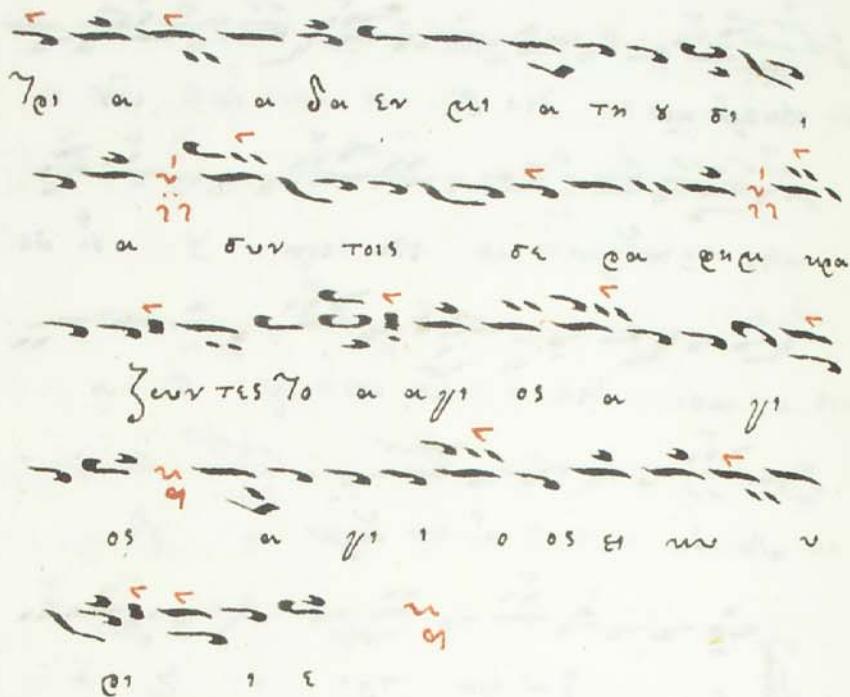 Τρι α α δα εν μι α τη ȣ σι ι
α συν τοις σε ρα φημ κρα
ζων τες το α α γι ος α γι
ος α γι ι ο ος ει κυ υ
ρι ι ε